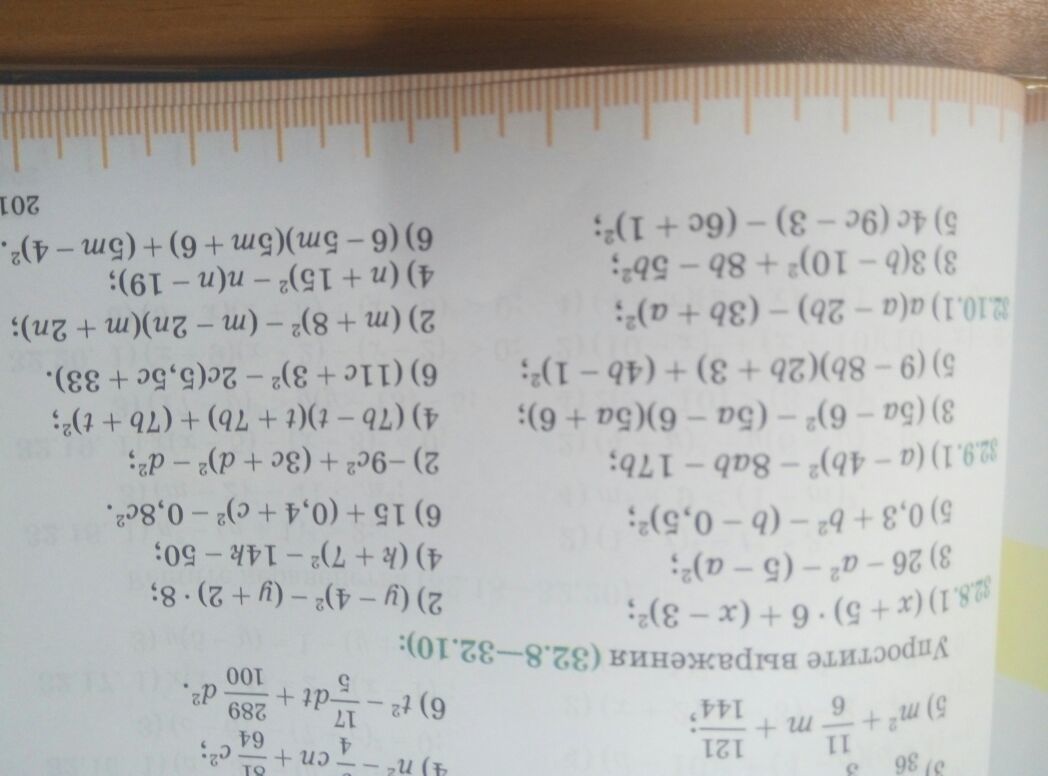 3) 36 3
4) n² – 4 cn + 81/64 c²;
5) m² + 11/6 m + 121/144;
6) t² – 17/5 dt + 289/100 d².
Упростите выражения (32.8—32.10):
32.8. 1) (x + 5) · 6 + (x – 3)²;
2) (y – 4)² – (y + 2) · 8;
3) 26 – a² – (5 – a)²;
4) (k + 7)² – 14k – 50;
5) 0,3 + b² – (b – 0,5)²;
6) 15 + (0,4 + c)² – 0,8c².
32.9. 1) (a – 4b)² – 8ab – 17b;
2) –9c² + (3c + d)² – d²;
3) (5a – 6)² – (5a – 6)(5a + 6);
4) (7b – t)(t + 7b) + (7b + t)²;
5) (9 – 8b)(2b + 3) + (4b – 1)²;
6) (11c + 3)² – 2c(5,5c + 33).
32.10. 1) a(a – 2b) – (3b + a)²;
2) (m + 8)² – (m – 2n)(m + 2n);
3) 3(b – 10)² + 8b – 5b²;
4) (n + 15)² – n(n – 19);
5) 4c (9c – 3) – (6c + 1)²;
6) (6 – 5m)(5m + 6) + (5m – 4)².
201